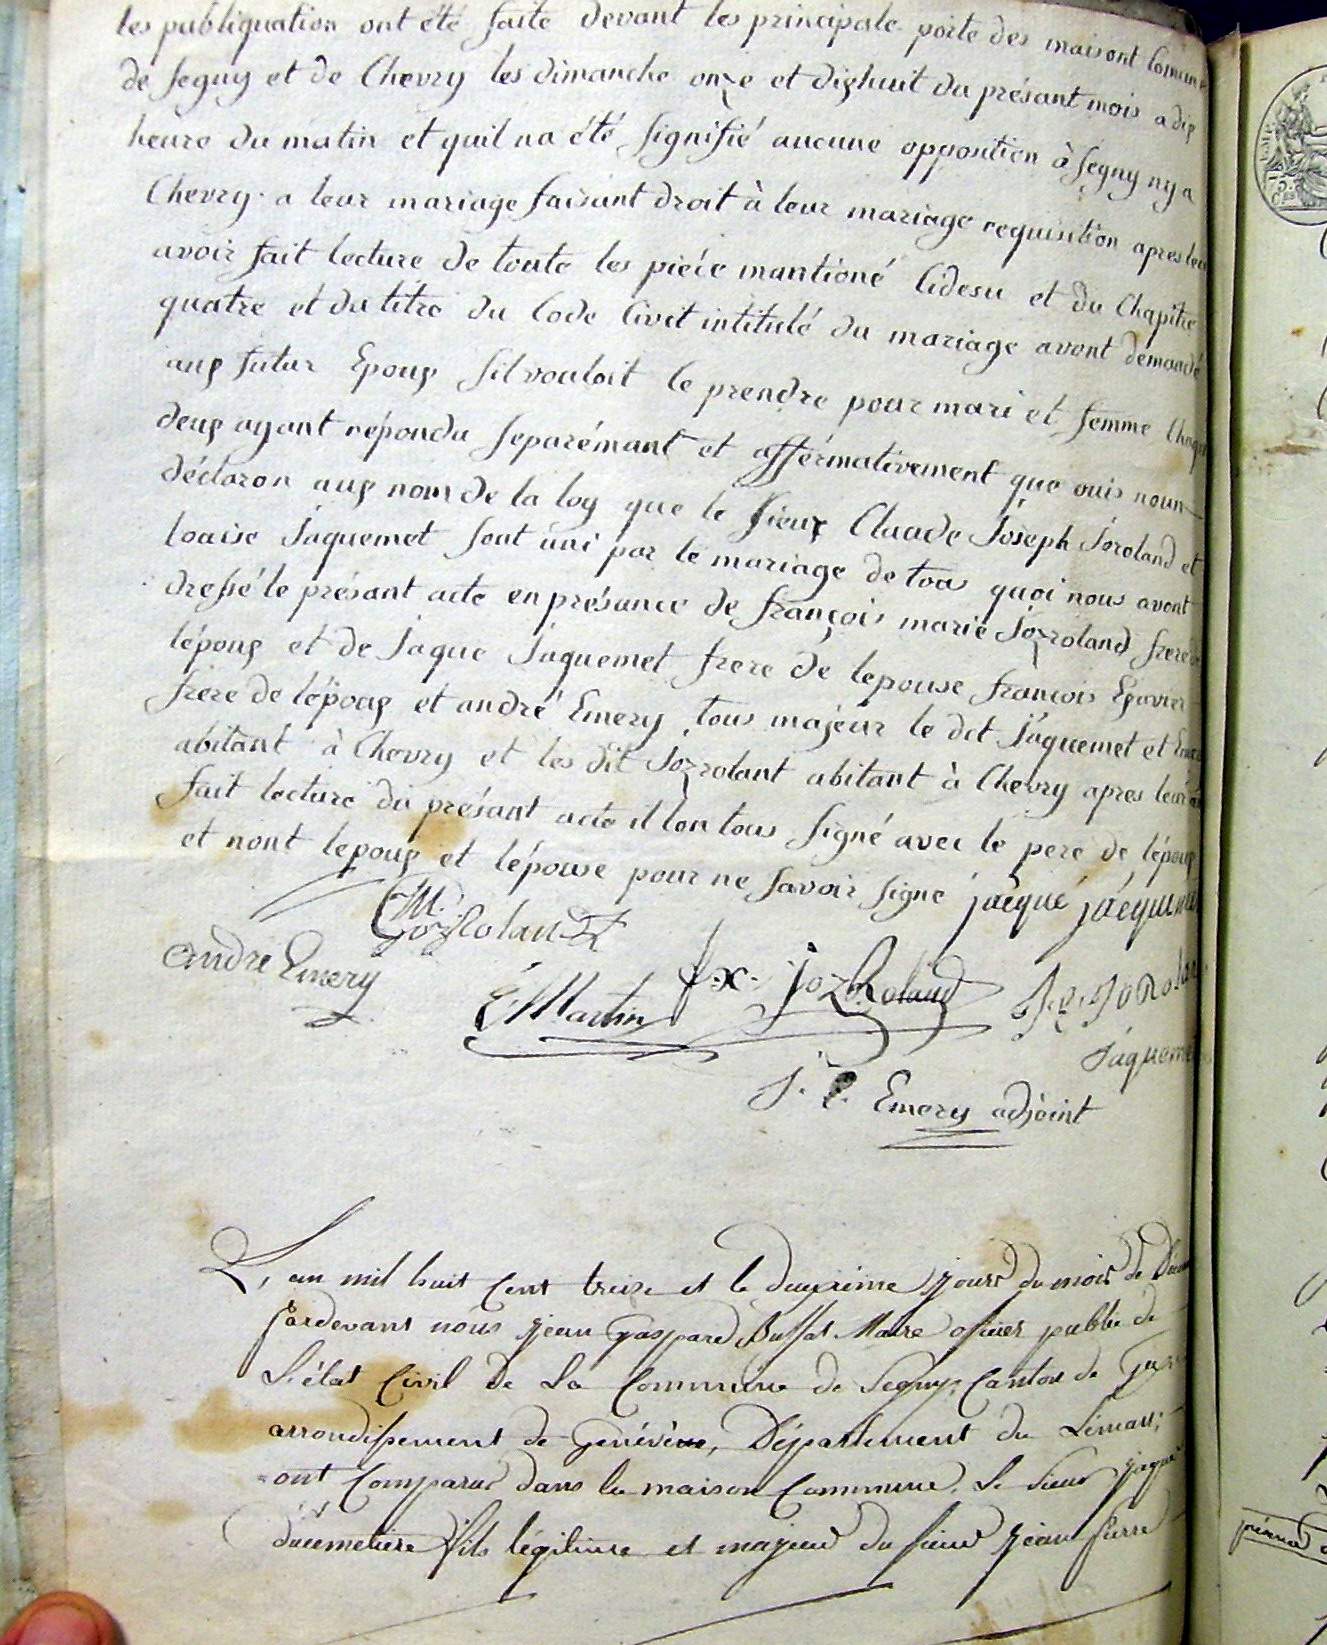 les publiquation ont été faite devant les principale porte des maisont Comune
de Segny et de Chevry les dimanche onze et dixhuit du présant mois a dix
heure du matin et quil na été signifié aucune opposition à Segny ny a
Chevry a leur mariage faisant droit à leur mariage requisition apres leur
avoir fait lecture de toute les piéce mantioné Cidesu et du Chapitre
quatre et du titre du Code Civil intitulé du mariage avont demandé
aux futur Epoux sil vouloit le prendre pour mari et femme Chaque
deux ayant répondu separémant et afférmativement que ouis noun
déclaron aux nom de la loy que le sieur Claude Joseph Joroland et
Louise Jaquemet sont uni par le mariage de tous quoi nous avont
dressé le présant acte en présance de françois marie Jozroland frere de
lépoux et de Jaque Jaquemet frere de lepouse francois
frere de lépoux et andré Emery tous majeur le dit Jaquemet et Emery
abitant à Chevry et les dit Jozrolant abitant à Chevry apres leur
fait lecture du présant acte il lon tous signé avec le pere de lépoux
et nont lepoux et lépouse pour ne savoir signe jacque jacquemet
f M. JozRoland
andré Emery
E Martin
f.x. jozRoland
Joroland
Jaquemet
J. C. Emery adjoint
L'an mil huit Cent treize et le deuxième jour du mois de
Pardevant nous jean Gaspard Buffat Maire officier public de
L'état Civil de La Commune de Segny Canton de Gex
arrondissement de Genève, Département du Léman;
ont Comparus dans la maison Commune, Le Sieur jaque
ducimetiere fils légitime et majeur du sieur jean pierre